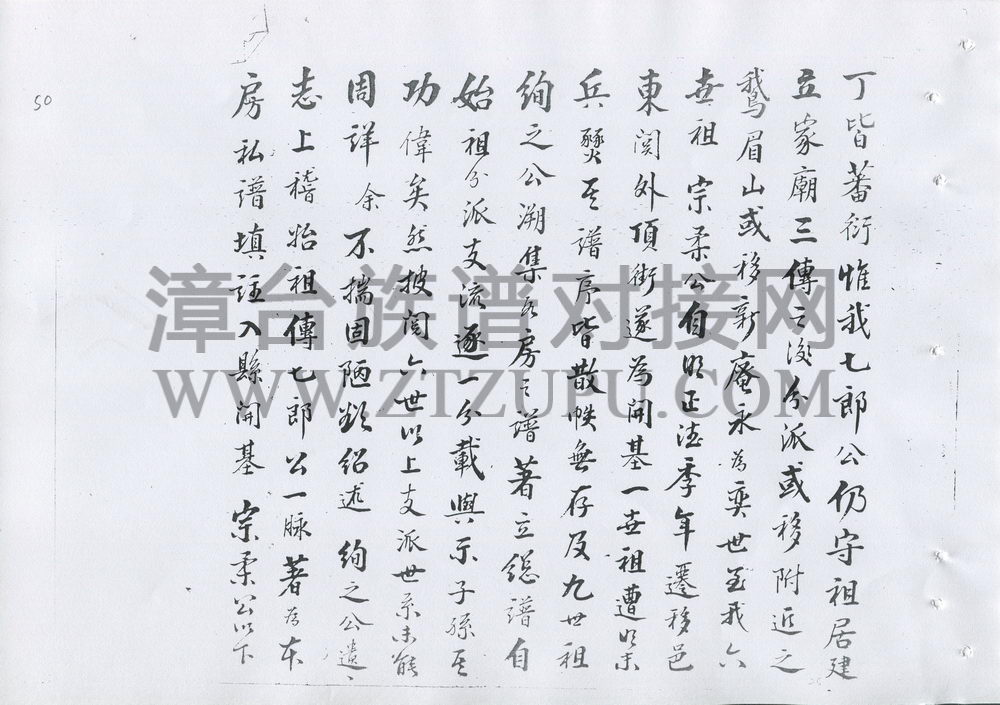 丁皆蕃衍惟我七郎公仍守祖居建
立家廟三傳之後分派或移附近之
鵝眉山或移新庵永為奕世至我六
世祖 宗柔公自明正德季年遷移邑
東閣外頂街遂為開基一世祖遭明末
兵燹其譜序皆散帙無存及九世祖
絢之公溯集各房之譜著立總譜自
始祖分派支流逐一分載與示子孫其
功偉矣然披閱六世以上支派世系未能
周詳余不揣固陋欲紹述 絢之公遺
志上稽始祖傳七郎公一脈著為本
房私譜填註入縣開基 宗柔公以下
50
漳台族谱对接网
WWW.ZTZUPU.COM